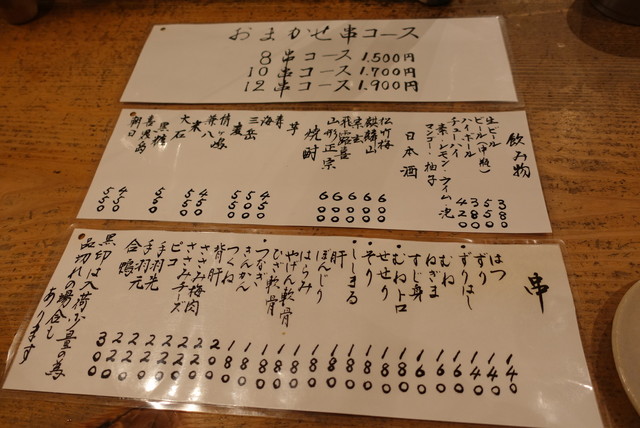 おまかせ串コース
8串コース 1,500円
10串コース 1,700円
12串コース 1,900円
飲み物
生ビール 380
ビール(中瓶) 550
ハイボール 380
チューハイ 420
素・レモン・ライム
マンゴー・柚子
日本酒
松竹梅 600
麒麟山 600
飛露喜 600
山形正宗 600
焼酎
芋
海
三岳
麦
兼八
米
大石
黒糖
喜界島
朝日
串
はつ 140
ずり 140
ずりはし 140
むね 160
ねぎま 160
すじ身 160
むねトロ 180
せせり 180
そり 180
ししまる 180
肝 180
ぼんじり 180
はらみ 180
やげん軟骨 180
ひざ軟骨 180
つなぎ 180
きんかん 180
つくね 180
背肝 200
ささみ梅肉 220
ささみチーズ 220
ピコ 220
手羽先 220
手羽元 220
合鴨 300
黒印は入荷少量の為
品切れの場合も
あります